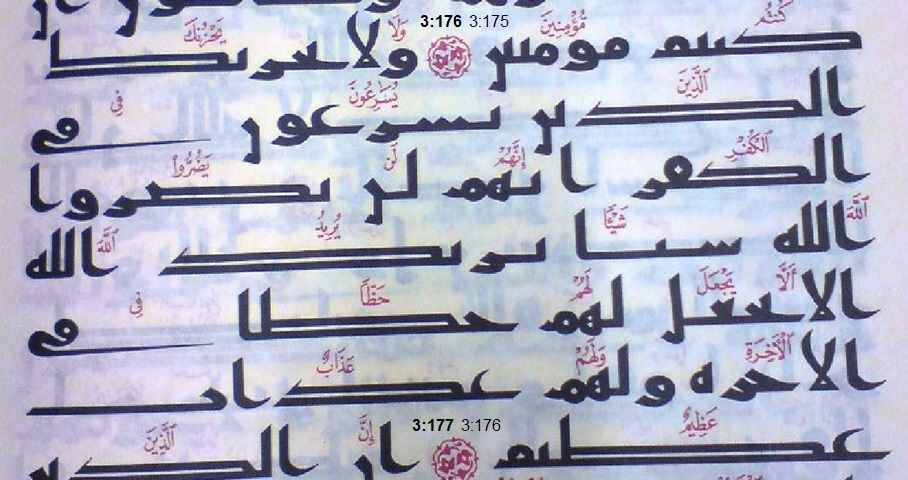 3:176 3:175
كُنتُم مُّؤْمِنِينَ وَلَا يَحْزُنكَ
كنتم مومنين ولا يحزنك
ٱلَّذِينَ يُسَٰرِعُونَ فِى
الذين يسرعون في
ٱلْكُفْرِ إِنَّهُمْ لَن يَضُرُّوا۟
الكفر انهم لن يضروا
ٱللَّهَ شَيْـًٔا يُرِيدُ ٱللَّهُ
الله شيا يريد الله
أَلَّا يَجْعَلَ لَهُمْ حَظًّا فِى
الا يجعل لهم حظا في
ٱلْـَٔاخِرَةِ وَلَهُمْ عَذَابٌ
الاخره ولهم عذاب
3:177 3:176
عَظِيمٌ إِنَّ ٱلَّذِينَ
عظيم ان الذين